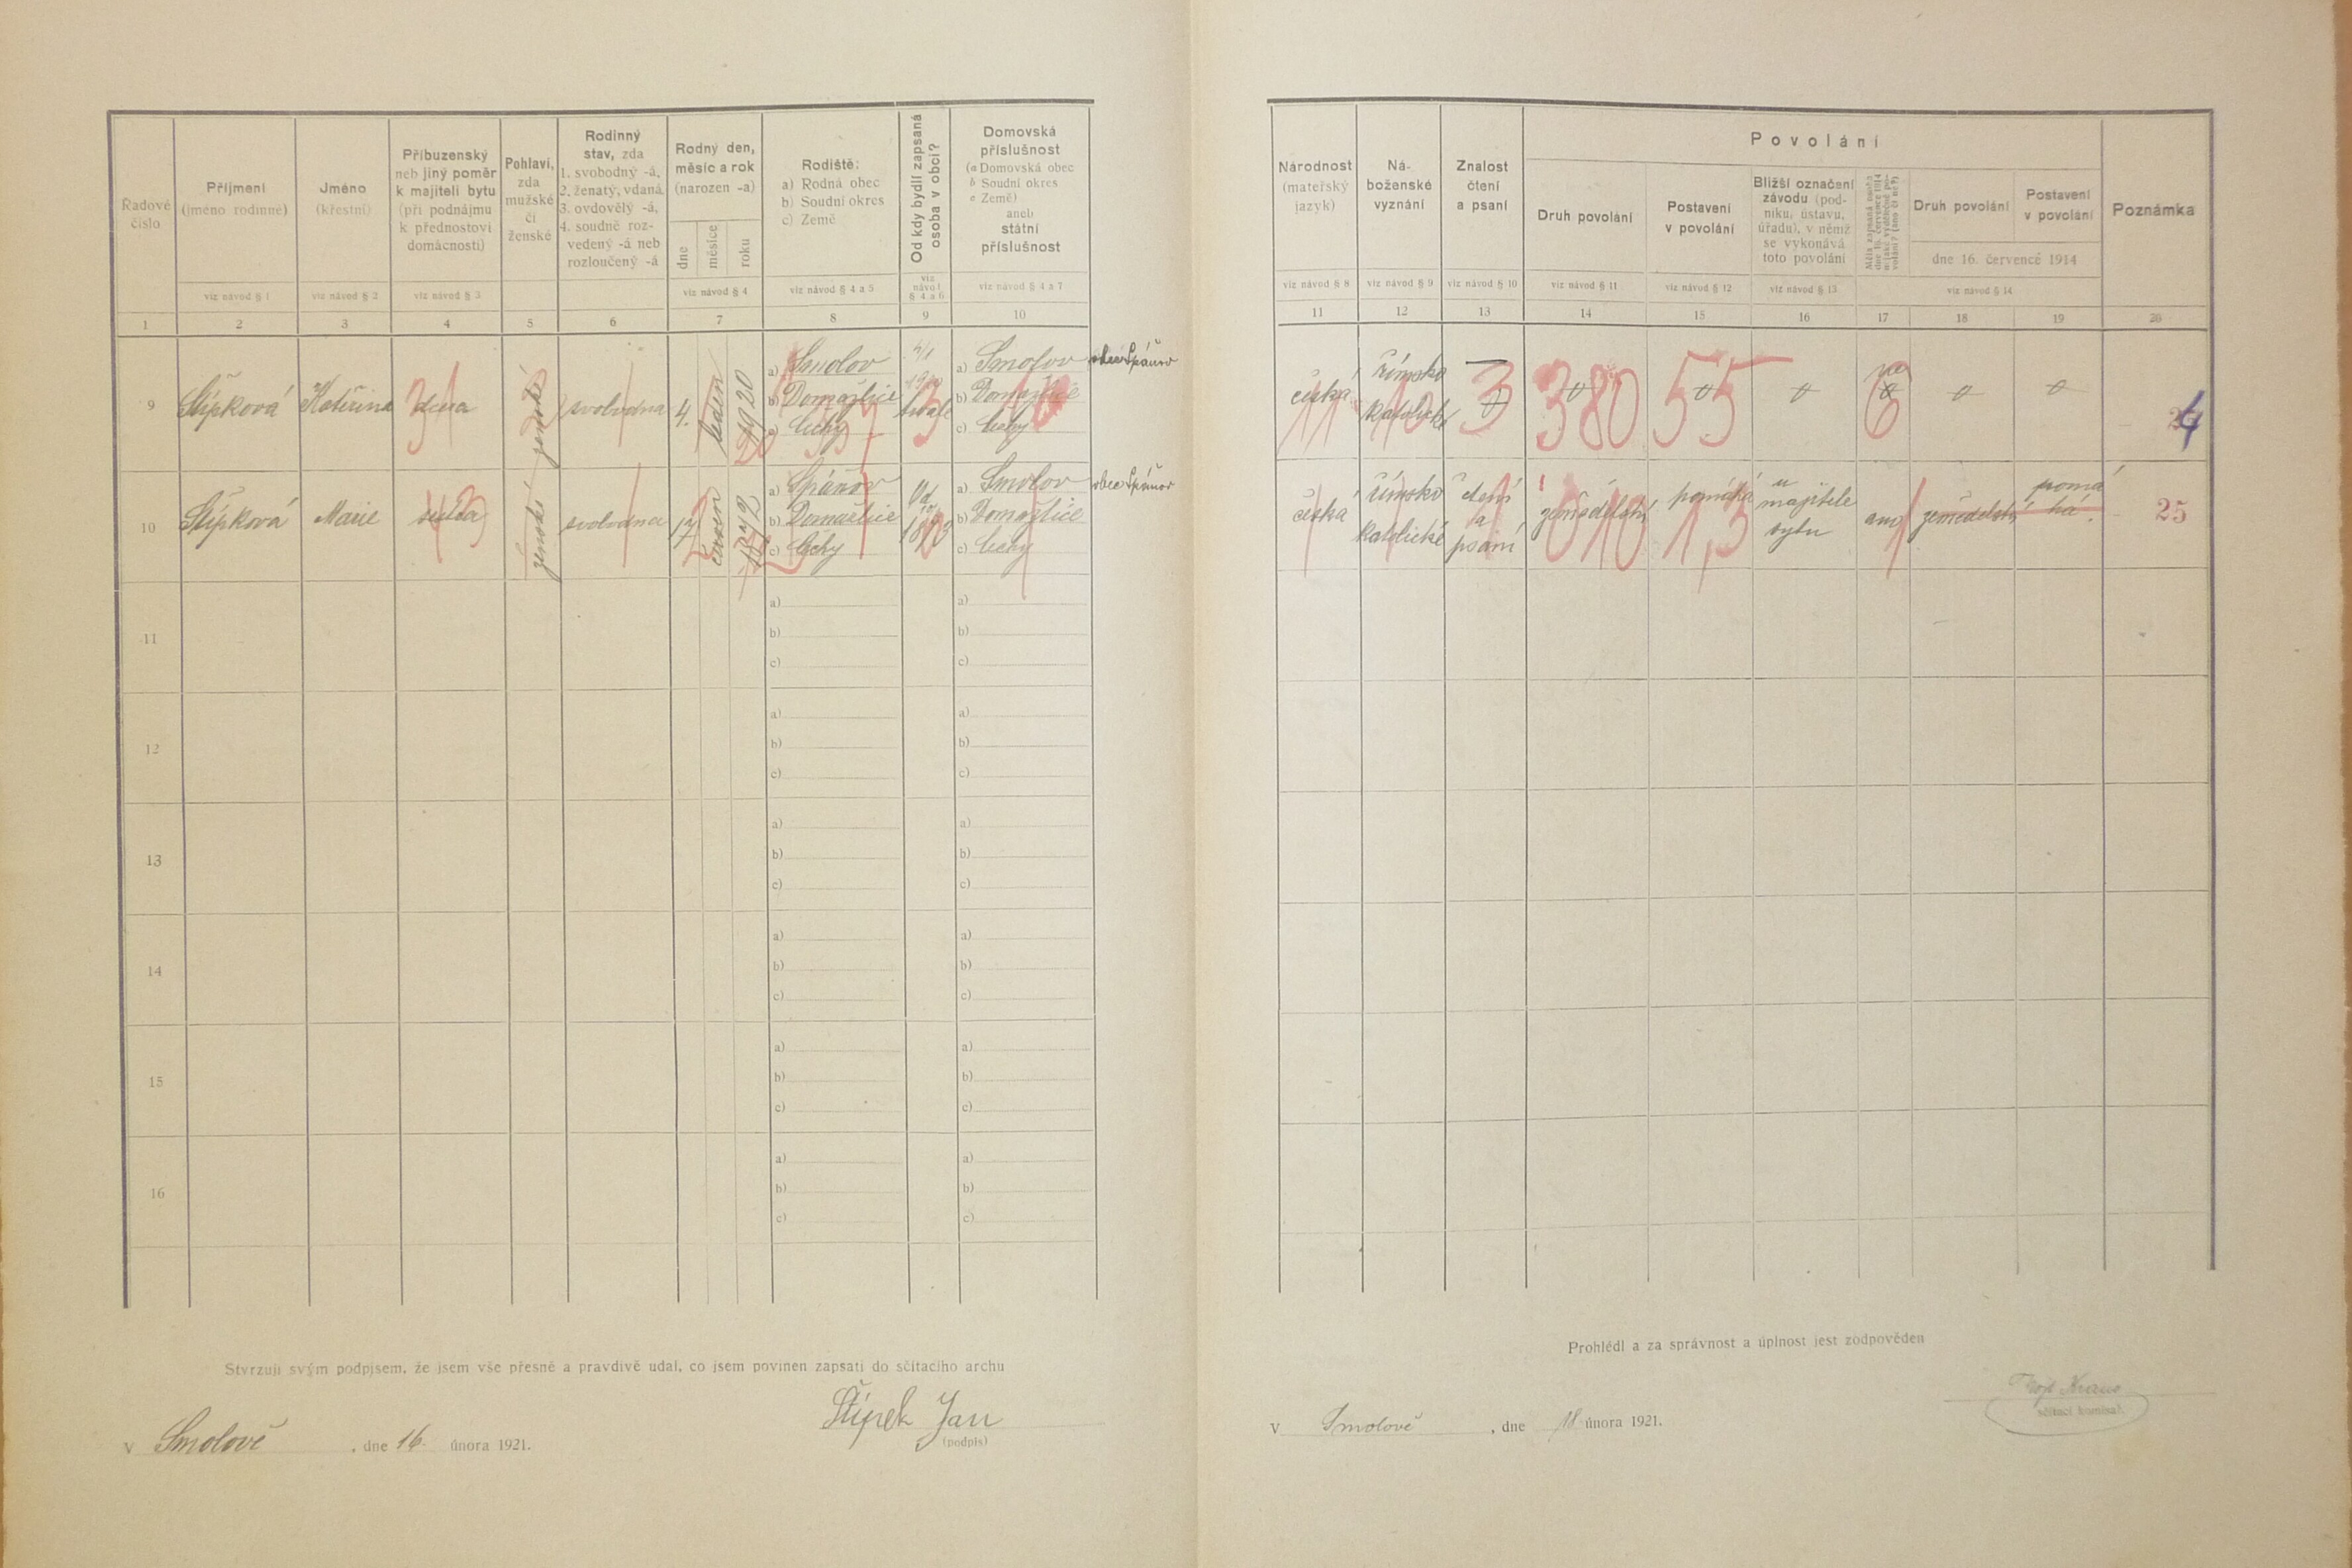 Řadové
číslo
Příjmení
(jméno rodinné)
viz návod § 1
Jméno
(křestní)
viz návod § 2
Příbuzenský
neb jiný poměr
k majiteli bytu
(při podnájmu
k přednostovi
domácnosti)
viz návod § 3
Pohlaví,
zda
mužské
či
ženské
Rodinný
stav, zda
1. svobodný -á,
2. ženatý, vdaná
3. ovdovělý -á,
4. soudně roz-
vedený -á neb
rozloučený -á
Rodný den,
měsíc a rok
(narozen -a)
dne
měsíce
roku
viz návod § 4
Rodiště:
a) Rodná obec
b) Soudní okres
c) Země
viz návod § 4 a 5
Od kdy bydlí zapsaná
osoba v obci?
viz
návod
§ 4 a 6
Domovská
příslušnost
(a Domovská obec
b Soudní okres
c Země)
aneb
státní
příslušnost
viz návod § 4 a 7
1 2 3 4 5 6 7 8 9 10
9 Štípková Kateřina dcera ženské svobodna 4. leden 1920
a) Smolov
b) Domažlice
c) Čechy
a) Smolov obec Spáňov
b) Domažlice
c) Čechy
31 2
10 Štípková Marie sestra ženské svobodna 17 červen 1872
a) Spáňov
b) Domažlice
c) Čechy
Od
a) Smolov obec Spáňov
b) Domažlice
c) Čechy
11
a)
b)
c)
a)
b)
c)
12
a)
b)
c)
a)
b)
c)
13
a)
b)
c)
a)
b)
c)
14
a)
b)
c)
a)
b)
c)
15
a)
b)
c)
a)
b)
c)
16
a)
b)
c)
a)
b)
c)
Stvrzuji svým podpisem, že jsem vše přesně a pravdivě udal, co jsem povinen zapsati do sčítacího archu
Štípek Jan
(podpis)
V Smolově, dne 16. února 1921.
Národnost
(mateřský
jazyk)
viz návod § 8
Ná-
boženské
vyznání
viz návod § 9
Znalost
čtení
a psaní
viz návod § 10
Povolání
Druh povolání
viz návod § 11
Postavení
v povolání
viz návod § 12
Bližší označení
závodu (pod-
niku, ústavu,
úřadu), v němž
se vykonává
toto povolání
viz návod § 13
Měla zapsaná osoba
dne 16. července 1914
nějaké výdělečné po-
volání? (ano či ne?)
Druh povolání
Postavení
v povolání
dne 16. července 1914
viz návod § 14
Poznámka
11 12 13 14 15 16 17 18 19 20
česká
římsko
katolické
3 380 55 ne 6
česká
římsko
katolické
čtení
a
psaní
zemědělství
pomáhá
u
majitele
bytu
ano
zemědělství
pomá
há.
010 1,3 1
25
Prohlédl a za správnost a úplnost jest zodpověden
Kraus
sčítací komisař.
V Smolově, dne 18 února 1921.